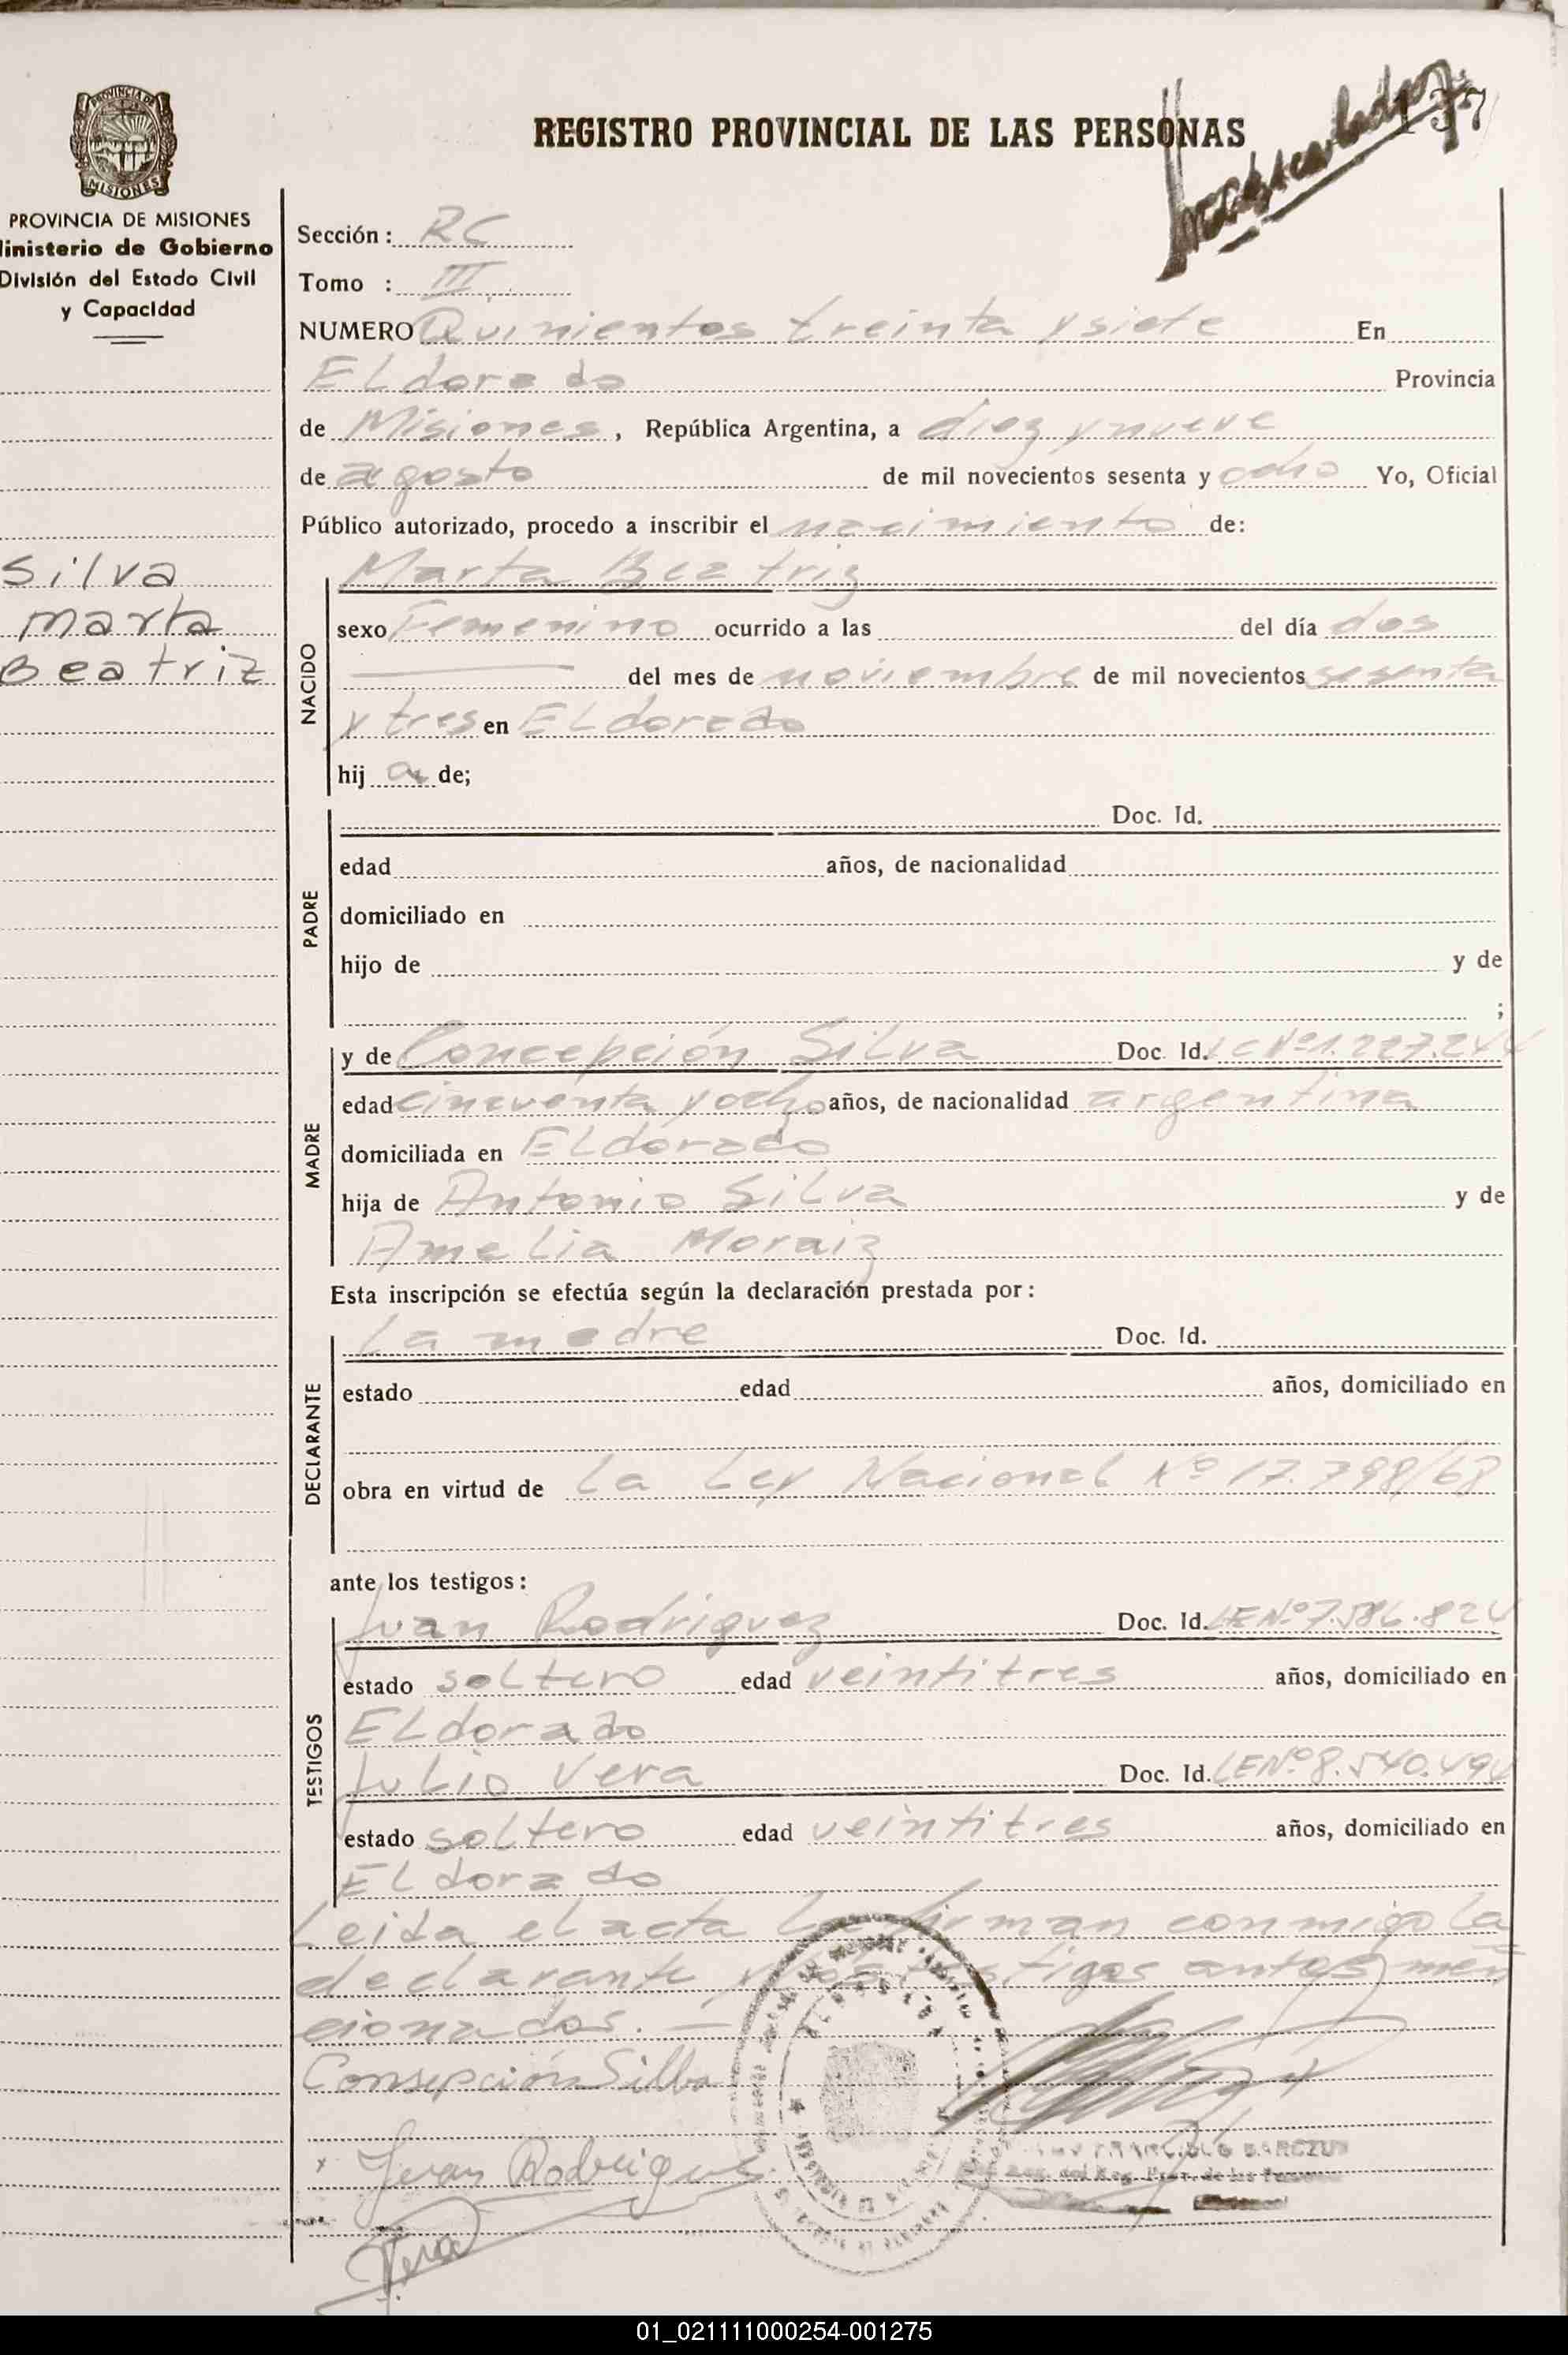 REGISTRO PROVINCIAL DE LAS PERSONAS
137
PROVINCIA DE MISIONES
MISIONES
PROVINCIA DE MISIONES
inisterio de Gobierno
División del Estado Civil
y Capacidad
Silva
Marta
Beatriz
Sección: RC
Tomo : III
NUMERO Quinientos treinta y siete En
ELdorado Provincia
de Misiones, República Argentina, a diez y nueve
de agosto de mil novecientos sesenta y ocho Yo, Oficial
Público autorizado, procedo a inscribir el nacimiento de:
NACIDO
Marta Beatriz
sexo Femenino ocurrido a las del día dos
del mes de noviembre de mil novecientos sesenta
y tres en ELdorado
hij a de;
PADRE
Doc. Id.
edad años, de nacionalidad
domiciliado en
hijo de y de
;
MADRE
y de Concepción Silva Doc. Id. LC Nº 1.227.244
edad cincuenta y ocho años, de nacionalidad argentina
domiciliada en ELdorado
hija de Antonio Silva y de
Amelia Moraiz
Esta inscripción se efectúa según la declaración prestada por:
DECLARANTE
La madre Doc. Id.
estado edad años, domiciliado en
obra en virtud de la Ley Nacional Nº 17.798/68
ante los testigos:
TESTIGOS
Juan Rodriguez Doc. Id. LE Nº 7.586.824
estado soltero edad veintitres años, domiciliado en
ELdorado
Julio Vera Doc. Id. LE Nº 8.540.494
estado soltero edad veintitres años, domiciliado en
ELdorado
Leida el acta la firman conmigo la
declarante y los testigos antes men
cionados. —
Consepción Silba
Juan Rodrigues
Vera
FRANCISCO BARCZUK
01_021111000254-001275